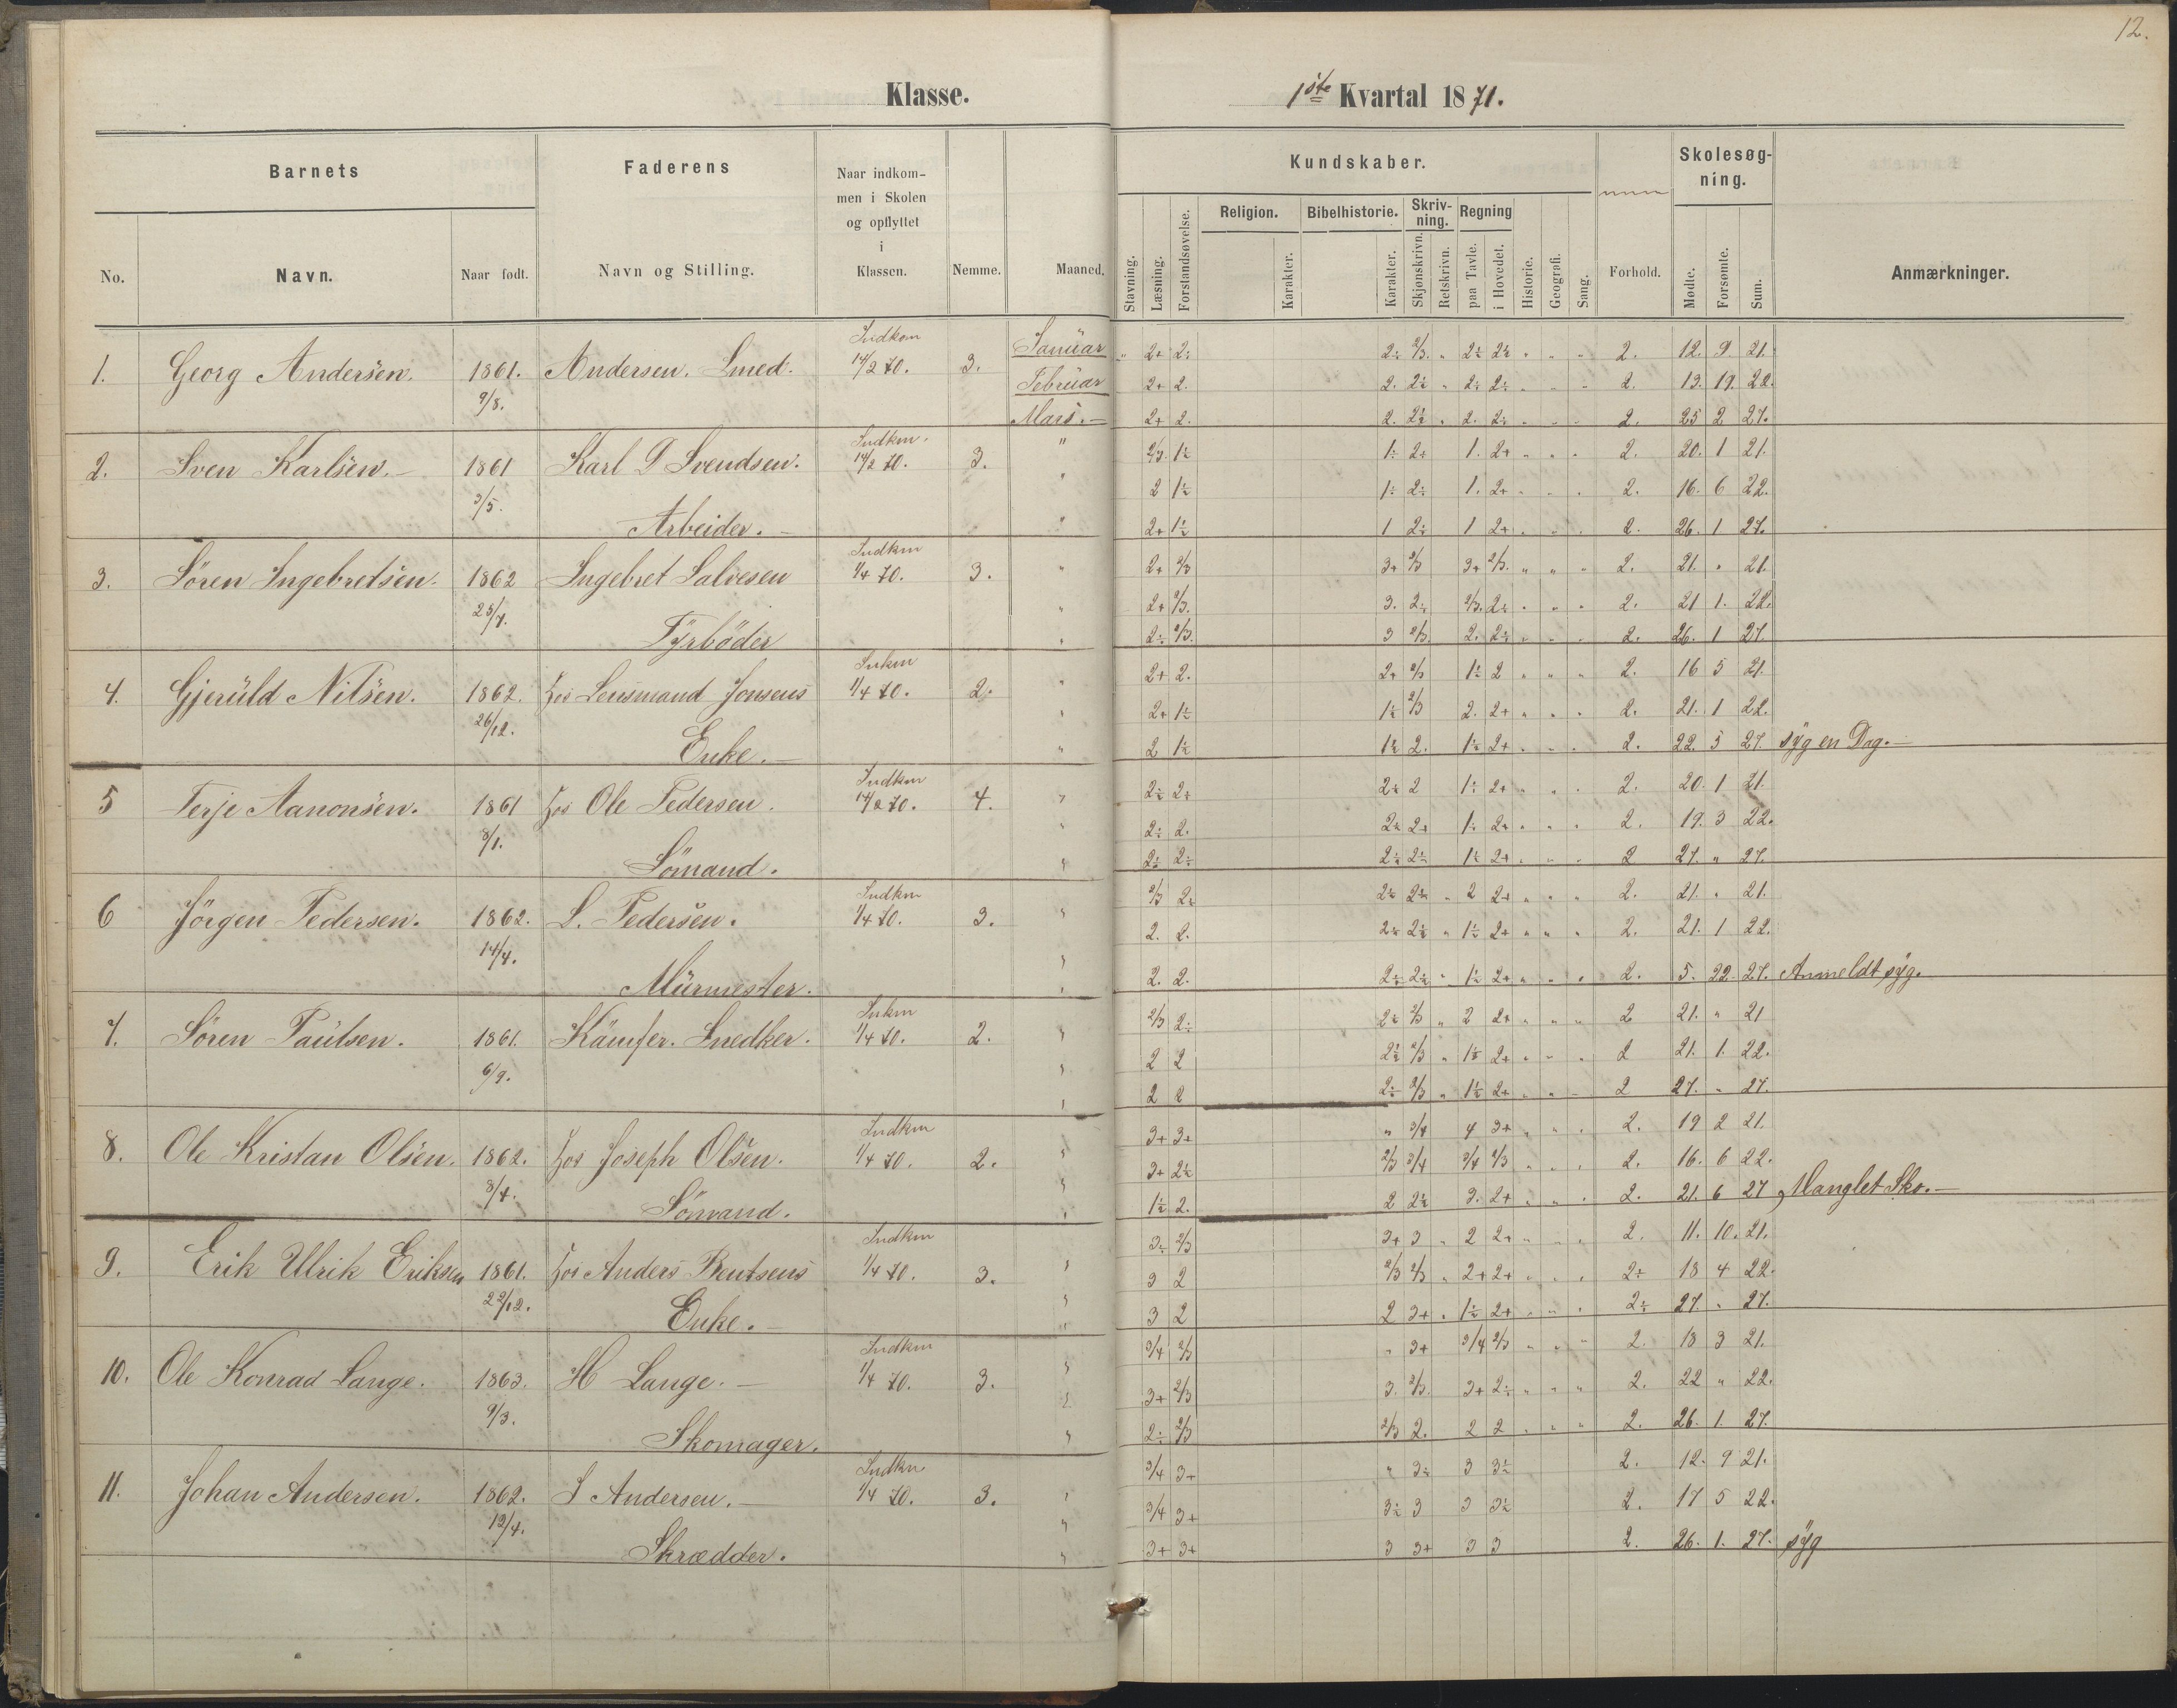 12.
Klasse. 1ste Kvartal 1871.
Barnets Faderens Naar indkom- Kundskaber. Skolesøg-
men i Skolen ning.
og opflyttet Religion. Bibelhistorie. Skriv- Regning
i ning.
No. Navn. Naar født. Navn og Stilling. Klassen. Nemme. Maaned. Stavning. Læsning. Forstandsøvelse. Karakter. Karakter. Skjønskrivn. Retskrivn. paa Tavle. i Hovedet. Historie. Geografi. Sang. Forhold. Mødte. Forsømte. Sum. Anmærkninger.
Indkom Januar 2+ 2. 12. 9. 21.
1. Georg Andersen. 1861. Andersen. Smed. 14/2 70. 3. Februar 2+ 2. 2. 2. 13. 19. 22.
9/8. Mars. 2+ 2. 2. 2. 2. 25 2 27.
Indkm. 2. 20. 1 21.
2. Sven Karlsen. 1861 Karl D Svendsen. 14/2 70. 3. 2 1. 2+ 2. 16. 6 22.
3/5. Arbeider. 2+ 1 1 2+ 2. 26. 1 27.
Indkm 2+ 2/3 3+ 2/3 3+ 2/3. 2. 21. " 21.
3. Sören Ingebretsen. 1862 Ingebret Salvesen 1/4 70. 3. 2+ 2/3. 3. 2. 21 1. 22.
25/7. Fÿrböder 2/3. 3 2/3. 2. 2. 26. 1 27.
Inkm 2+ 2. 2+ 2/3 2 2. 16 5 21.
4. Gjeruld Nilsen. 1862. hos Lensmand Jensens 1/4 70. 2. 2+ 2/3 2. 2+ 2. 21. 1 22.
26/12. Enke. 2 2. 2+ 2. 22. 5 27. sÿg en Dag.
Indkm 2+ 2 2+ 2. 20. 1 21.
5 Terje Aanonsen. 1861 hos Ole Pedersen. 14/2 70. 4. 2. 2+ 2+ 2. 19. 3 22.
8/1. Sömand. 2+ 2 27. " 27.
Indkm 2/3 2 2+ 2. 21. " 21.
6 Jörgen Pedersen. 1862. L. Pedersen. 1/4 70. 3. 2. 2. 2+ 2. 21. 1 22.
14/7. Mürmester. 2. 2. 2+ 2. 5. 22. 27. Anmeldt sÿg.
Inkm 2/3 2/3 2 2+ 2 21. " 21
7. Sören Paulsen. 1861. Kämfer. Snedker. 1/4 70. 2. 2 2 2/3 2+ 2 21. 1. 22.
6/9. 2 2 2/3 2+ 2 27. " 27.
Indkm 3+ 3+ " 3/4 4 3+ 2. 19 2 21.
8. Ole Kristan Olsen. 1862. hos Joseph Olsen. 1/4 70. 2. 3+ 2/3 3/4 3/4 2/3 2. 16. 6 22.
Sömand. 2. 2 3. 2+ 2. 21. 6 27 Manglet Sko.
Indkm 2/3 3+ 3 2 2+ 2. 11. 10. 21.
9. Erik Ulrik Eriksen 1861. hos Anders Bentsens 1/4 70. 3. 3 2 2/3 2/3 2+ 2+ 18 4 22.
22/12. Enke. 3 2 2 3+ 2+ 27. " 27.
Indkm 3/4 2/3 " 3+ 3/4 2/3 2. 18 3 21.
10. Ole Konrad Lange. 1863. H Lange. 1/4 70. 3. 3+ 2/3 3. 2/3. 3+ 2. 22 " 22.
9/3. Skomager. 2/3 2/3 2. 2 2 2. 26. 1. 27.
Indkm 3/4 3+ " 3 2. 12. 9 21.
11. Johan Andersen. 1862. J Andersen. 1/4 70. 3. 3/4 3+ 3 3 2. 17 5 22.
Skrædder. 3+ 3+ 3 3+ 3 3 2. 26. 1. 27. sÿg